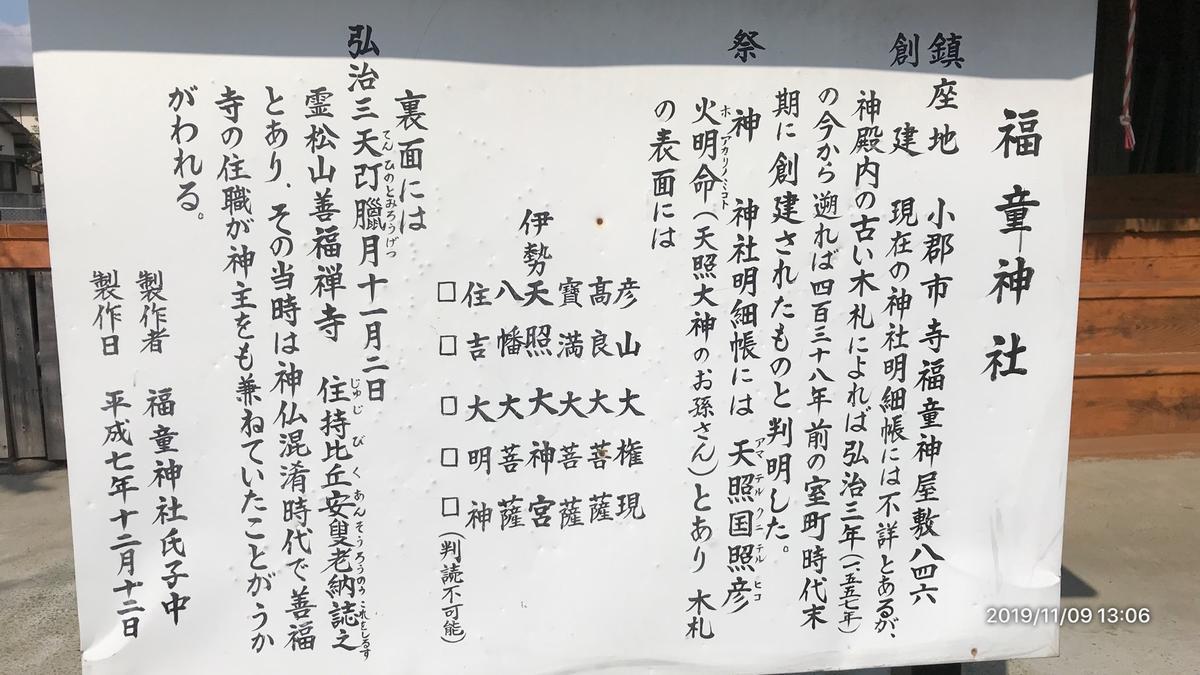 福童神社
鎮座地　小郡市寺福童神屋敷八四六
創建　現在の神社明細帳には不詳とあるが、
神殿内の古い木札によれば弘治三年(一五五七年)
の今から遡れば四百三十八年前の室町時代末
期に創建されたものと判明した。
祭神　神社明細帳には　天照国照彦
アマテルクニテルヒコ
火明命(天照大神のお孫さん)とあり　木札
ホノアカリノミコト
の表面には
彦山大権現
高良大菩薩
寶満大菩薩
伊勢天照大神宮
八幡大菩薩
住吉大明神
□□□□□(判読不可能)
裏面には
弘治三天訂臘月十一月二日
てんひのとみろうげつ
霊松山善福禅寺　住持比丘安叟老納誌之
じゅじびくあんそうろうのうこれをしるす
とあり．その当時は神仏混淆時代で善福
寺の住職が神主をも兼ねていたことがうか
がわれる。
製作者　福童神社氏子中
製作日　平成七年十二月十二日
2019/11/09 13:06